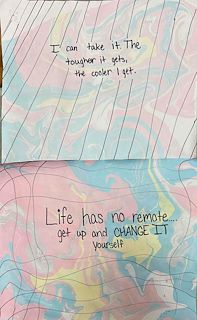 I can take it. The
tougher it gets,
the cooler I get.
Life has no remote....
get up and CHANGE IT
yourself